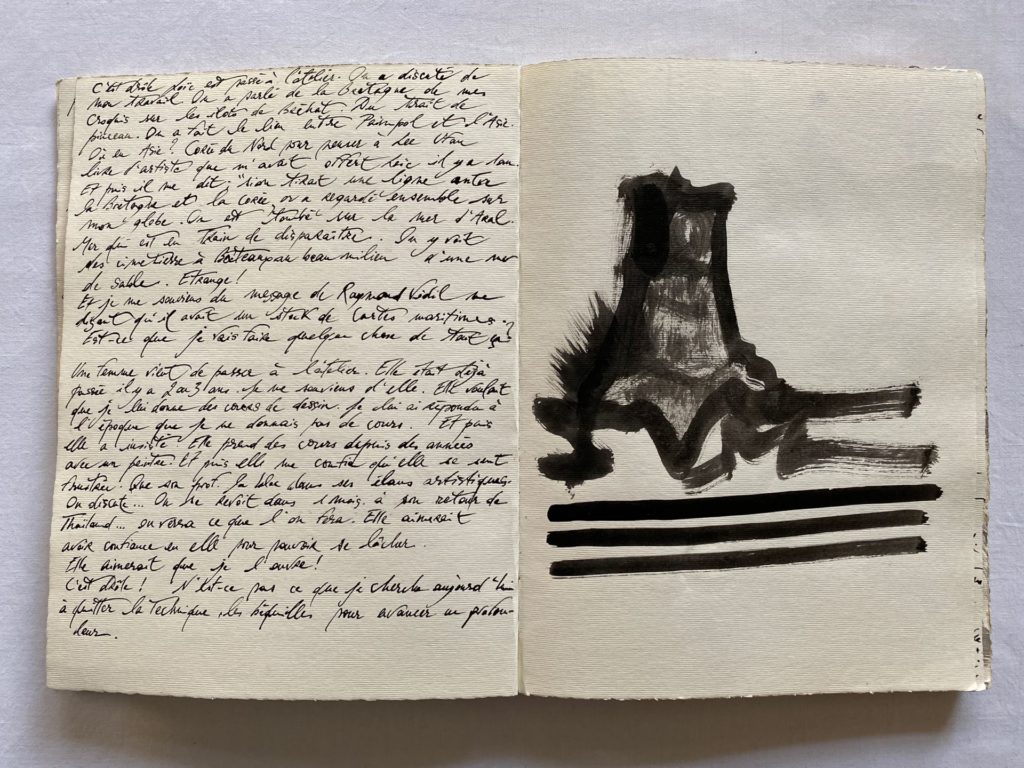 C'est drôle Loïc est passé à l'atelier. On a discuté de
mon travail. On a parlé de la Bretagne de mes
croquis sur les îlots de Bréhat. Du trait de
pinceau. On a fait le lien entre Paimpol et l'Asie.
Où en Asie? Corée du Nord pour penser à Lee Ufan
livre d'artiste que m'avait offert Loïc il y a
Et puis il me dit: "si on tirait une ligne entre
la Bretagne et la Corée, on a regardé ensemble sur
mon globe. On est tombé sur la mer d'Aral.
Mer qui est en train de disparaître. On y voit
des cimetière à Bateaux au beau milieu d'une mer
de sable. Etrange!
Et je me souviens du message de Raymond me
disant qu'il avait un stock de cartes maritimes.
Est-ce que je vais faire quelque chose de tout ça?
Une femme vient de passer à l'atelier. Elle était déjà
passée il y a 2 ou 3 ans. Je me souviens d'elle. Elle voulait
que je lui donne des cours de dessin. Je lui ai répondu à
l'époque que je ne donnais pas de cours. Et puis
elle a insisté. Elle prend des cours depuis des années
avec un peintre. Et puis elle me confie qu'elle se sent
frustrée. Que son prof. la bloque dans ses élans artistiques.
On discute... On se revoit dans 1 mois, à son retour de
Thaïland... on verra ce que l'on fera. Elle aimerait
avoir confiance en elle pour pouvoir se lâcher.
Elle aimerait que je l'ouvre!
C'est drôle! N'est-ce pas ce que je cherche aujourd'hui
à quitter la technique, les béquilles pour avancer en profon-
deur.